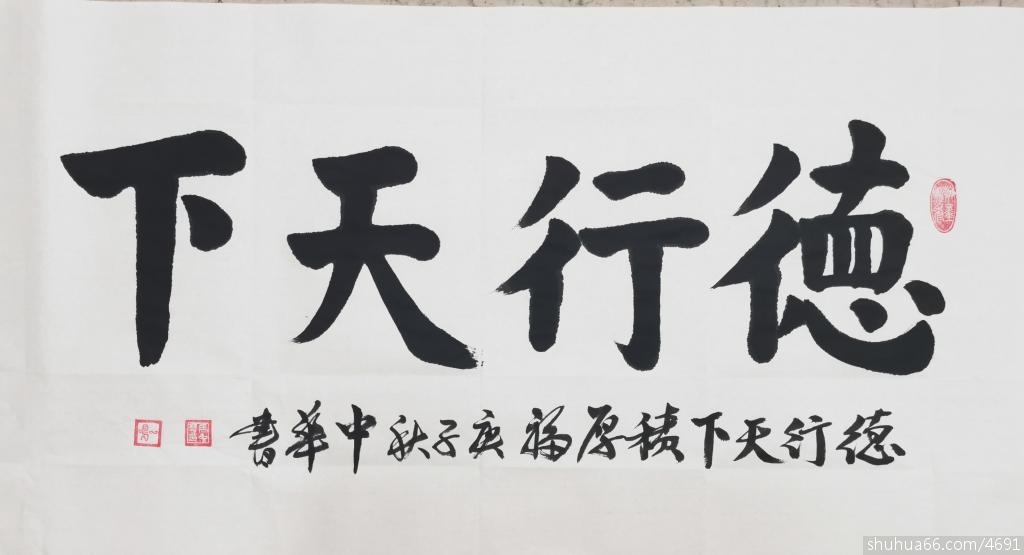 德行天下
德行天下積厚福庚子秋中華書
shuhua66.com/4691